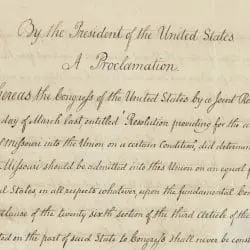 By the President of the United States
A Proclamation.
Whereas the Congress of the United States by a Joint Re
day of March last entitled "Resolution providing for the a
of Missouri into the Union on a certain Condition", did determin
Missouri should be admitted into this Union on an equal f
States in all respects whatever, upon the fundamental Con
clause of the twenty sixth section of the third article of the
on the part of said State to Congress shall never be con